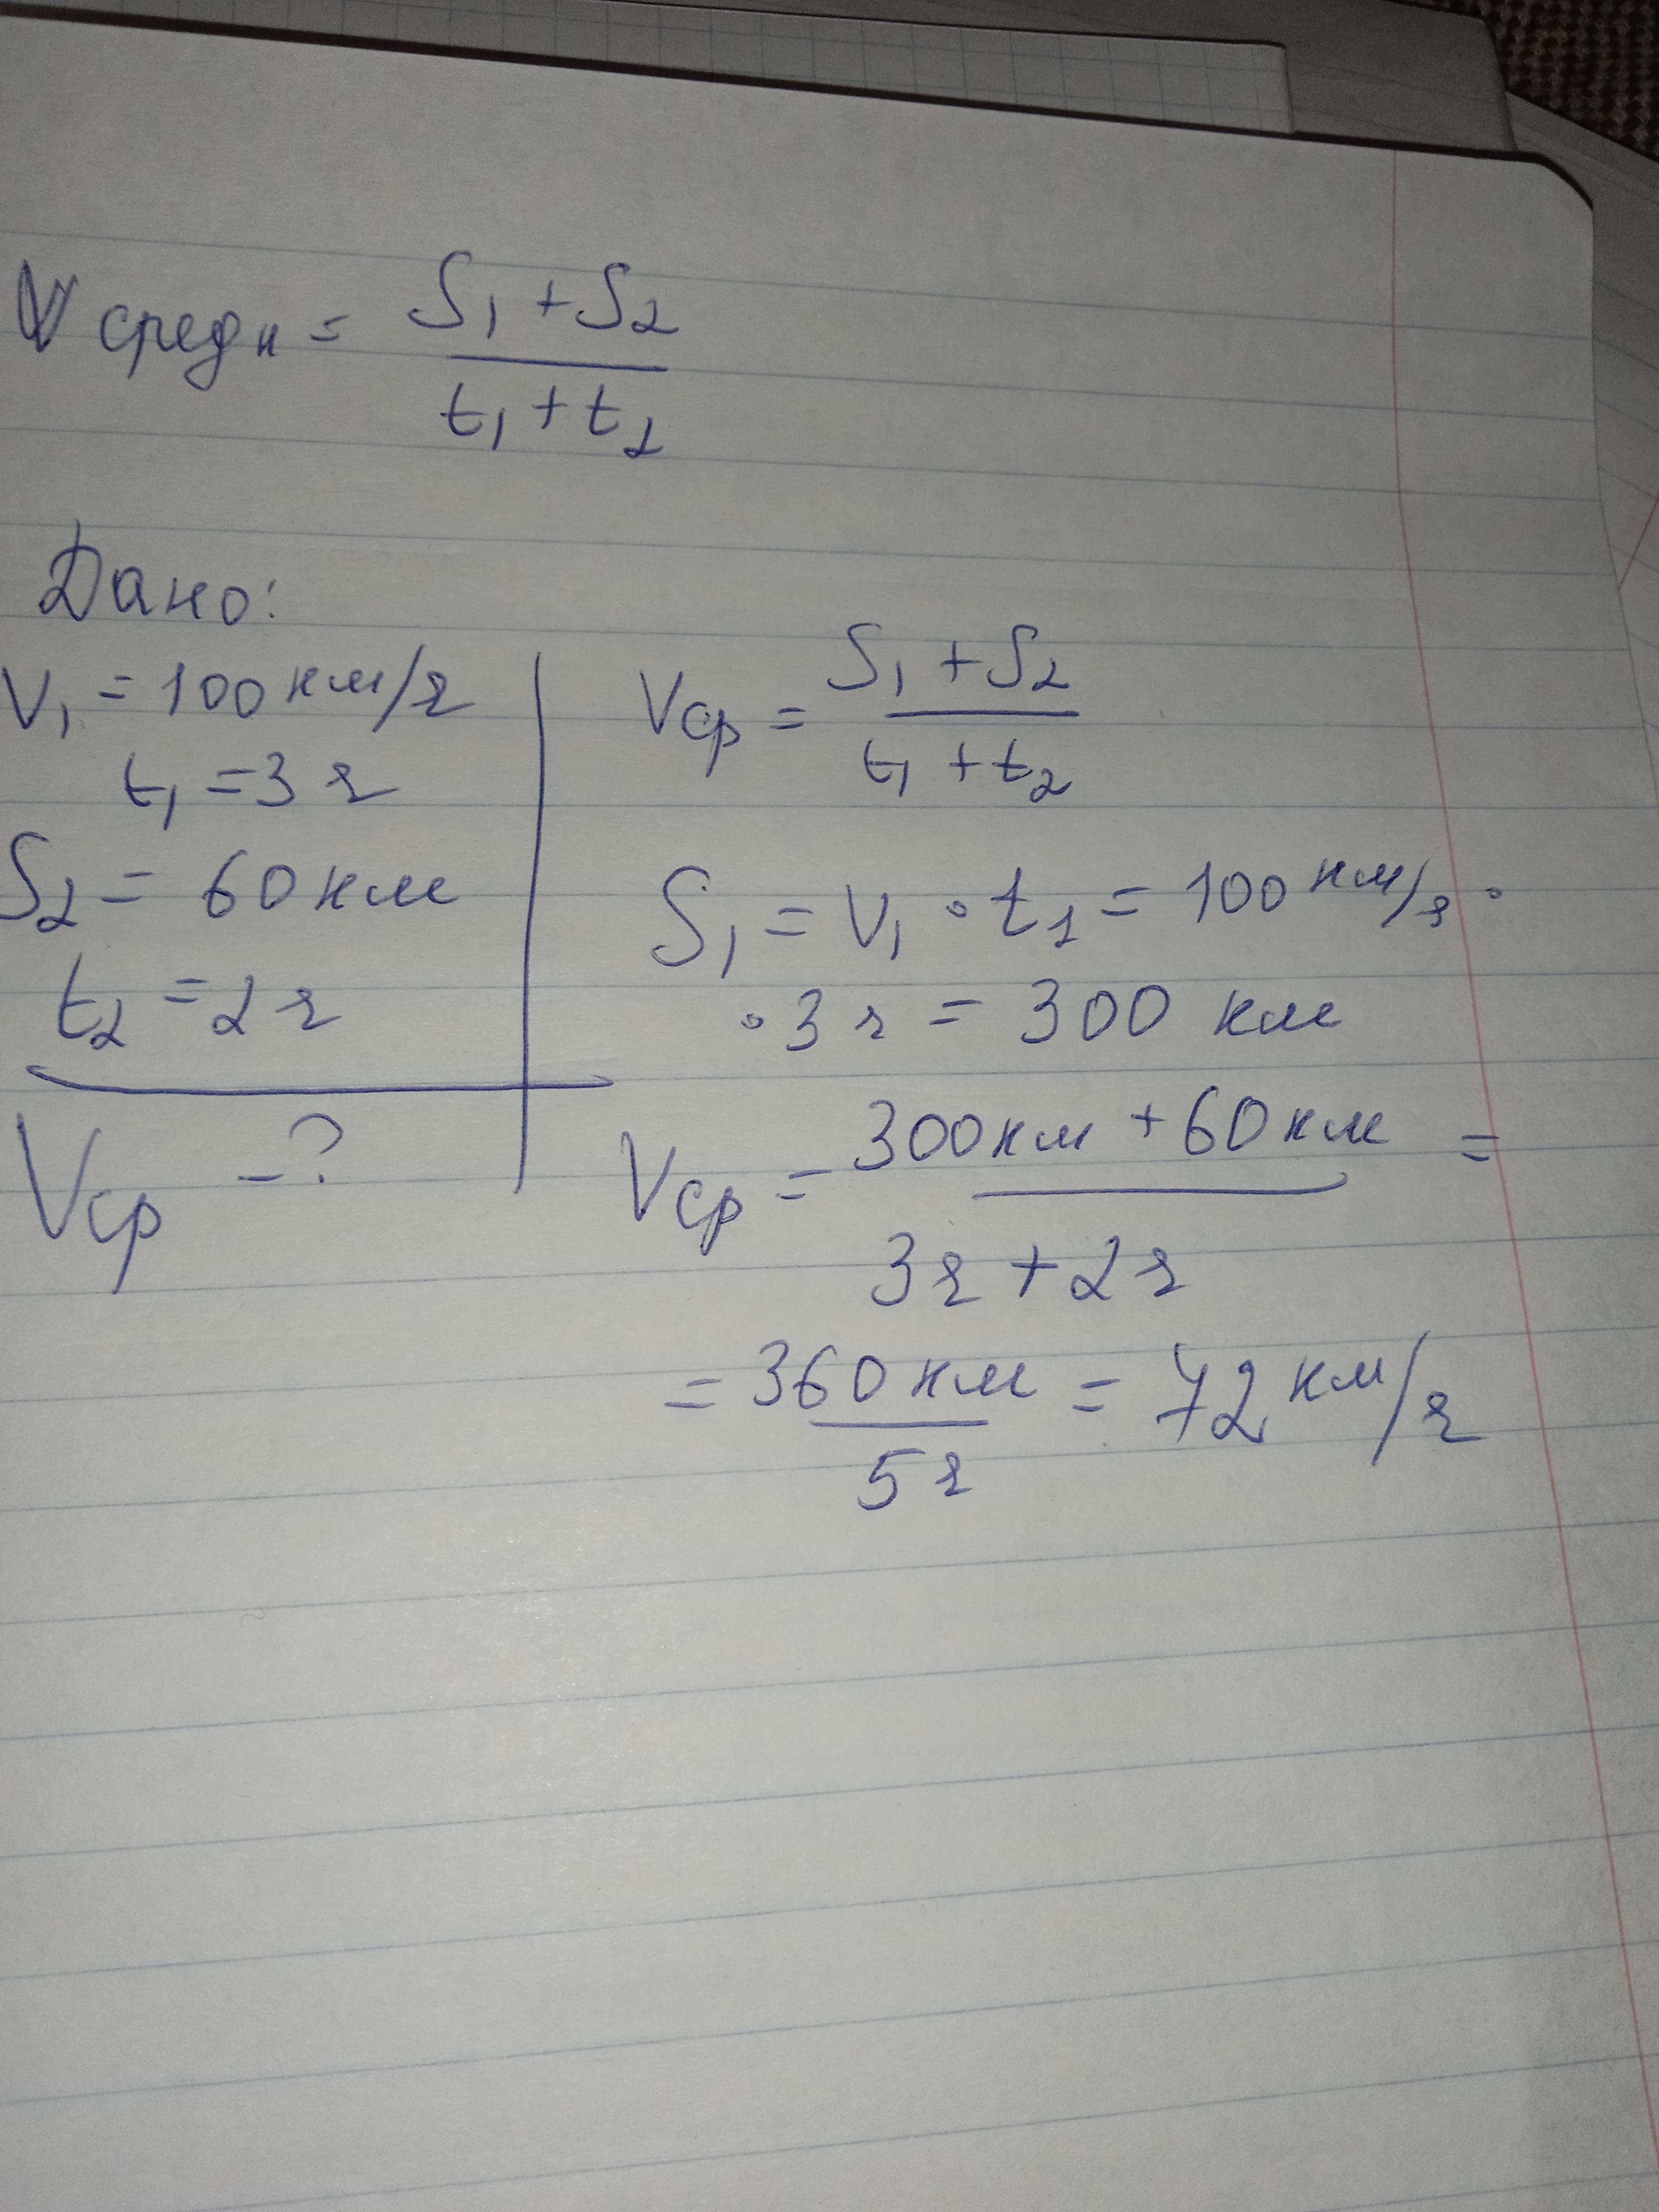 V средн = S₁ + S₂ / t₁ + t₂
Дано:
V₁ = 100 км/ч
t₁ = 3 ч
S₂ = 60 км
t₂ = 2 ч
Vср - ?
Vср = S₁ + S₂ / t₁ + t₂
S₁ = V₁ · t₁ = 100 км/ч ·
· 3 ч = 300 км
Vср = 300 км + 60 км / 3 ч + 2 ч =
= 360 км / 5 ч = 72 км/ч